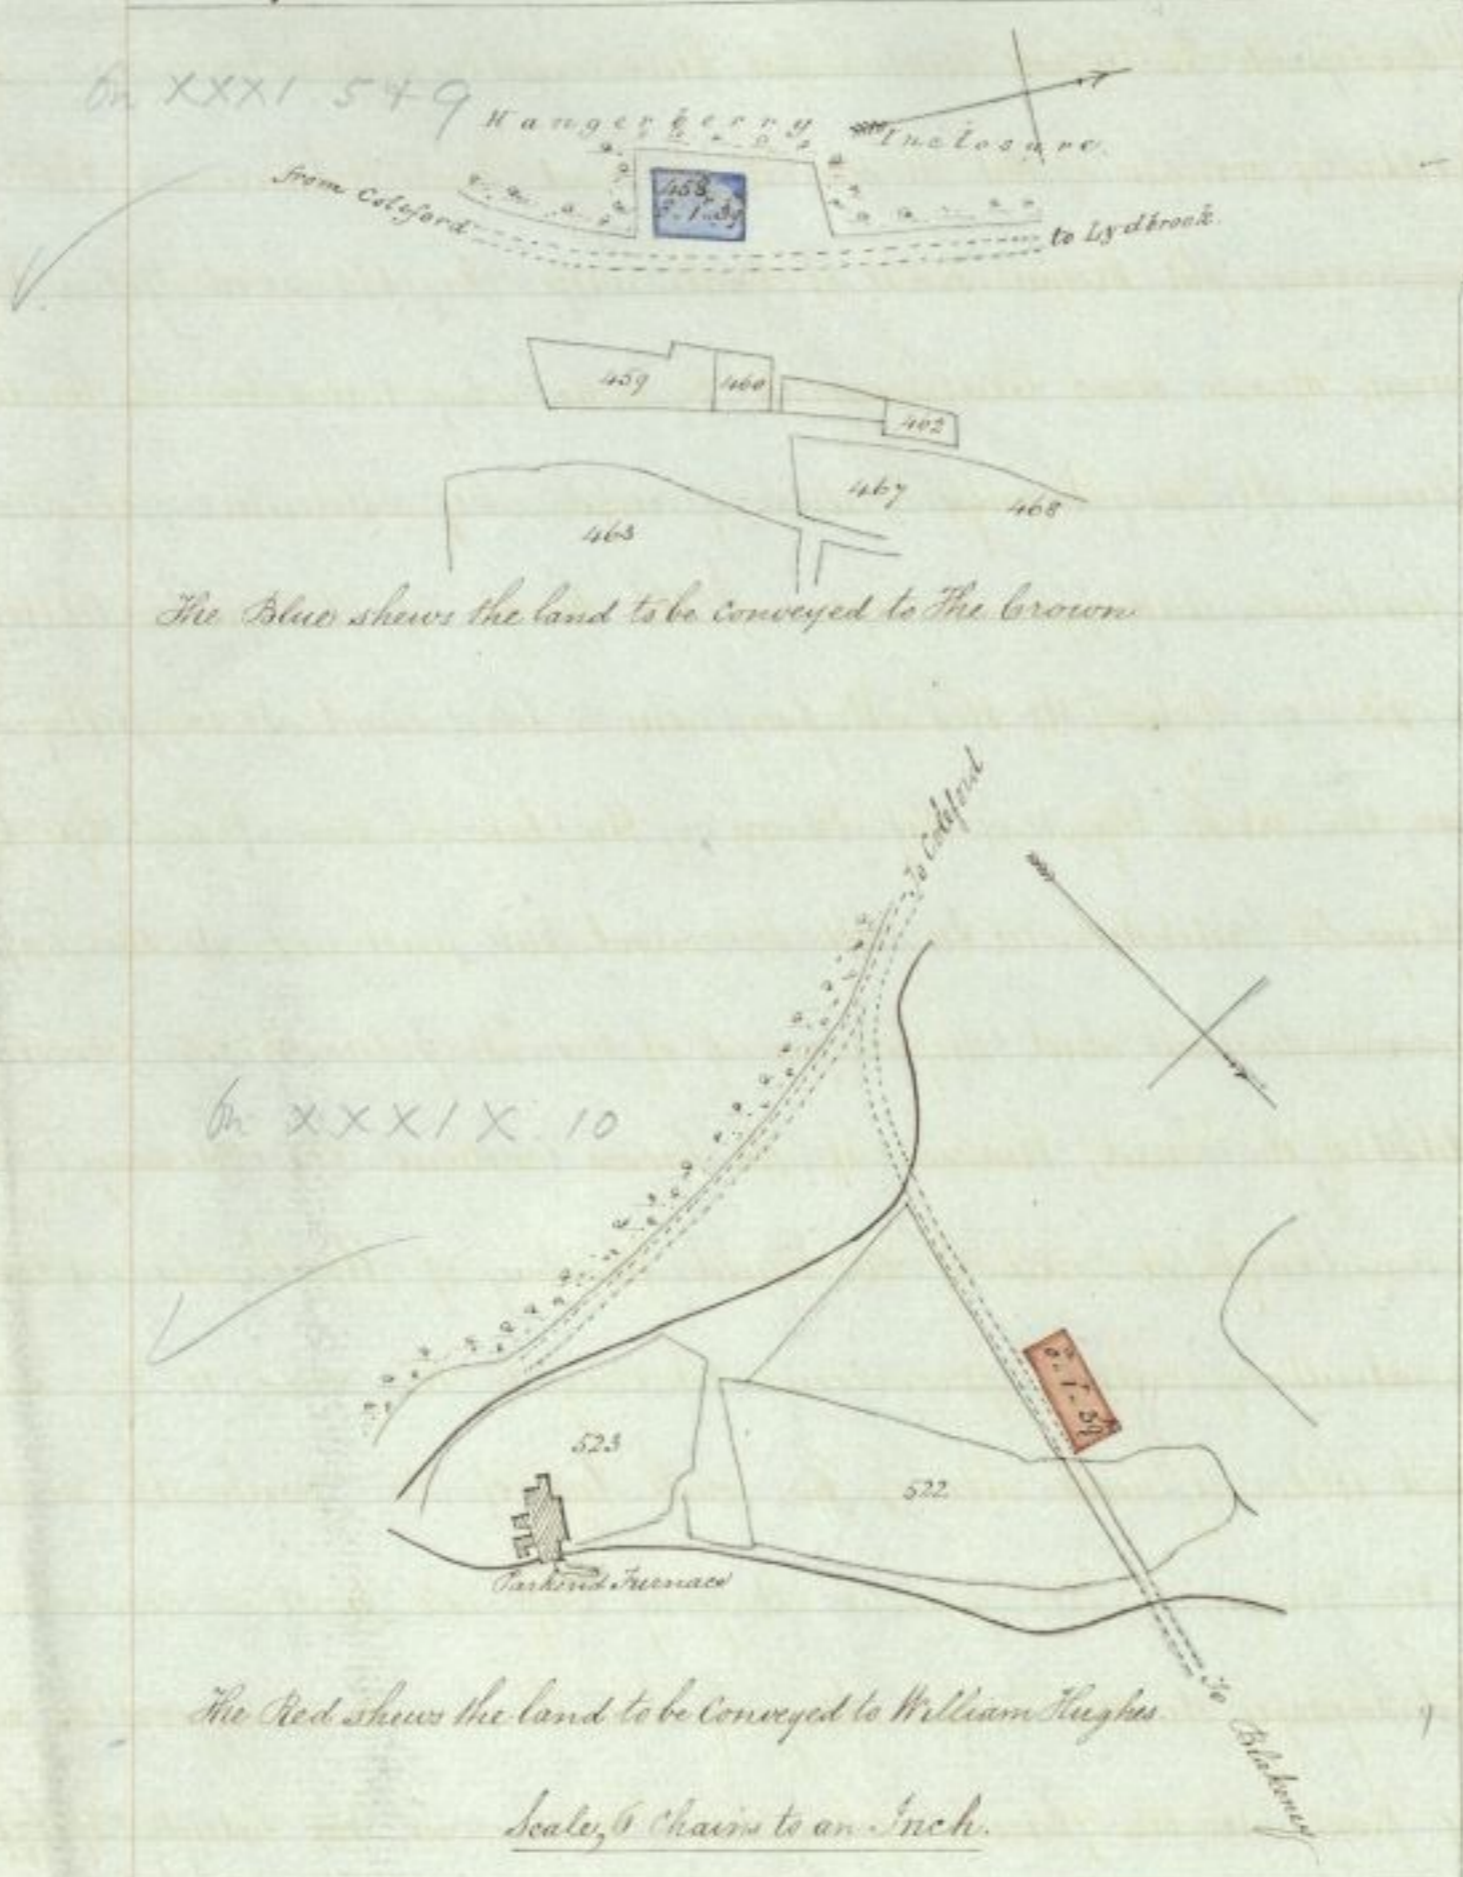 On XXXI 549
Hangerberry Inclosure.
from Coleford
458
0 - 1 - 39
to Lydbrook
459
460
462
467
468
463
The Blue shews the land to be conveyed to The Crown
To Coleford
On XXXIX 10
0 - 1 - 39
523
522
Parkend Furnace
The Red shews the land to be Conveyed to William Hughes.
To Blakeney
Scale, 6 Chains to an Inch.